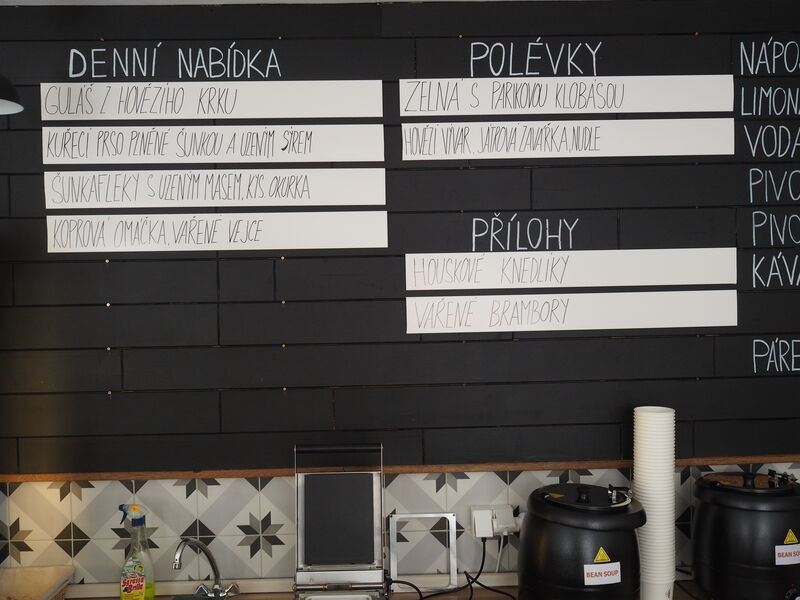 DENNÍ NABÍDKA
GULÁŠ Z HOVĚZÍHO KRKU
KUŘECÍ PRSO PLNĚNÉ ŠUNKOU A UZENÝM SÝREM
ŠUNKAFLEKY S UZENÝM MASEM, KYS. OKURKA
KOPROVÁ OMÁČKA, VAŘENÉ VEJCE
POLÉVKY
ZELNÁ S PAPRIKOVOU KLOBÁSOU
HOVĚZÍ VÝVAR, JÁTROVÁ ZAVÁŘKA, NUDLE
PŘÍLOHY
HOUSKOVÉ KNEDLÍKY
VAŘENÉ BRAMBORY
NÁPO
LIMON
VODA
PIVO
PIVO
KÁVA
PÁRE
BEAN SOUP
BEAN SOUP